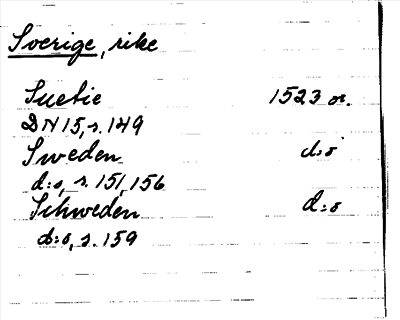 Sverige, rike
Suetie 1523 or.
DN 15, s. 149
Sweden d:o
d:o, s. 151, 156
Schweden d:o
d:o, s. 159